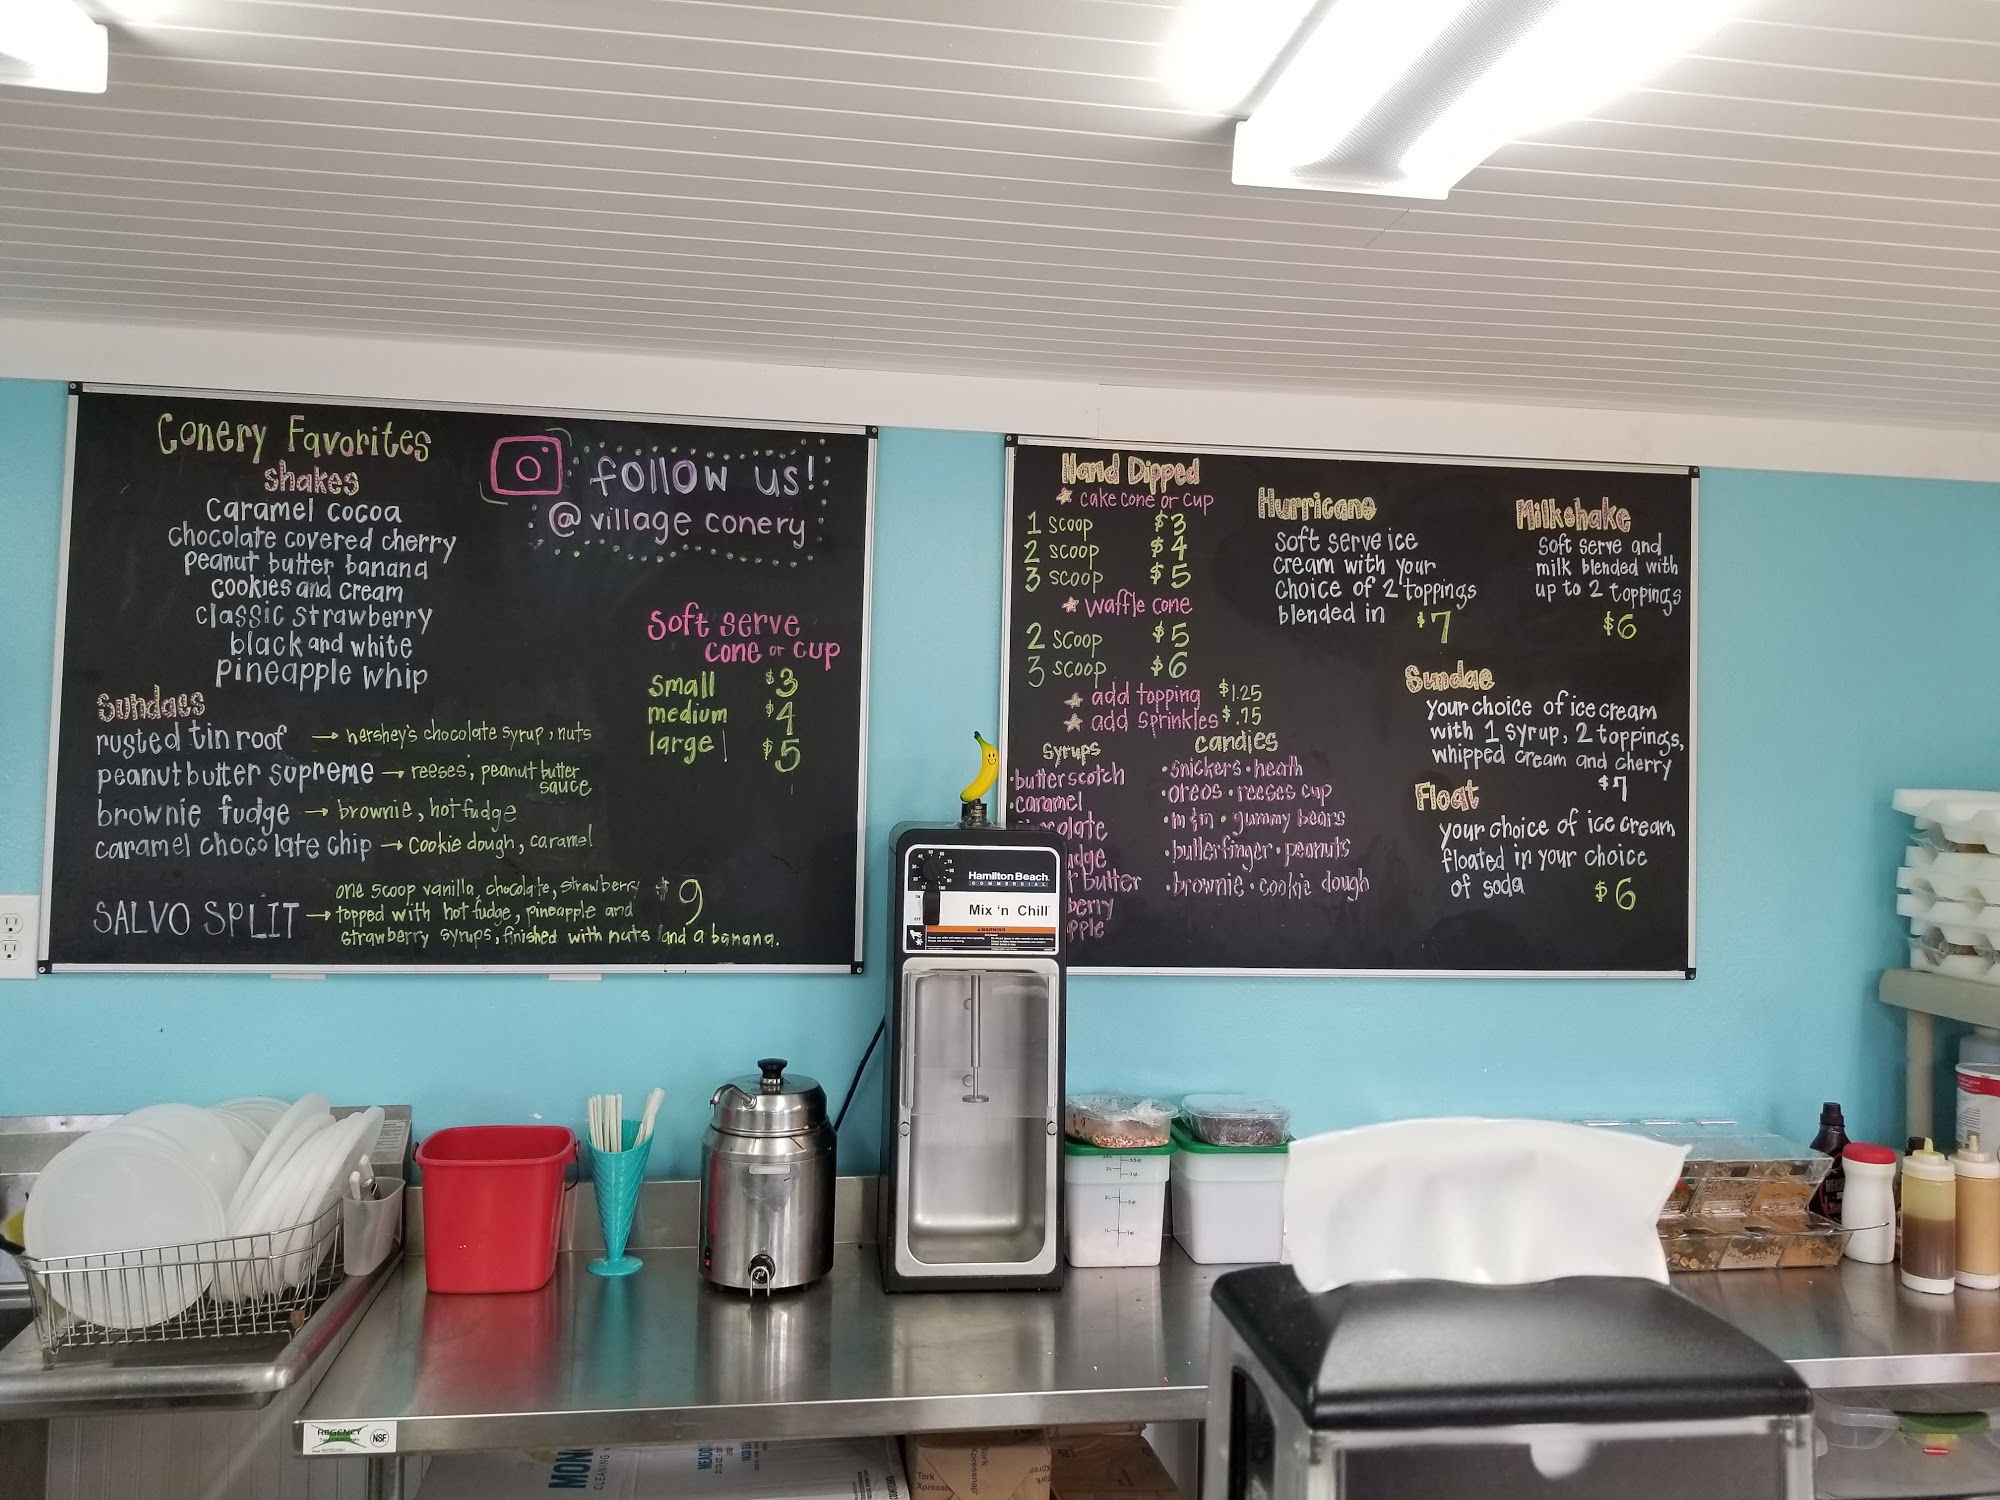 Conery Favorites
shakes
caramel cocoa
chocolate covered cherry
peanut butter banana
cookies and cream
classic strawberry
black and white
pineapple whip
Sundaes
rusted tin roof → hershey's chocolate syrup, nuts
peanut butter supreme → reeses, peanut butter sauce
brownie fudge → brownie, hot fudge
caramel chocolate chip → cookie dough, caramel
SALVO SPLIT → one scoop vanilla, chocolate, strawberry $9
topped with hot fudge, pineapple and
strawberry syrups, finished with nuts and a banana.
follow us!
@villageconery
Soft serve
cone or cup
small $3
medium $4
large $5
Hand Dipped
cake cone or cup
1 scoop $3
2 scoop $4
3 scoop $5
waffle cone
2 scoop $5
3 scoop $6
add topping $1.25
add sprinkles $.75
syrups
•butterscotch
•caramel
candies
•snickers •heath
•oreos •reeses cup
•m&m •gummy bears
•butterfinger •peanuts
•brownie •cookie dough
Hurricane
soft serve ice
cream with your
choice of 2 toppings
blended in $7
Milkshake
soft serve and
milk blended with
up to 2 toppings
$6
Sundae
your choice of ice cream
with 1 syrup, 2 toppings,
whipped cream and cherry
$7
Float
your choice of ice cream
floated in your choice
of soda $6
Hamilton Beach
COMMERCIAL
Mix 'n Chill
WARNING
REGENCY
NSF
Tork